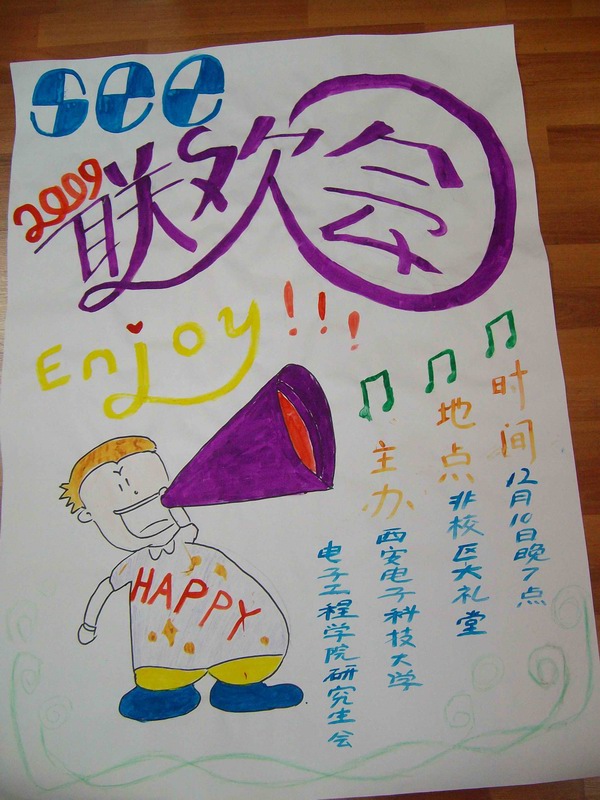 see
2009
联欢会
Enjoy!!!
HAPPY
时间 12月10日晚7点
地点 北校区大礼堂
主办 西安电子科技大学
电子工程学院研究生会